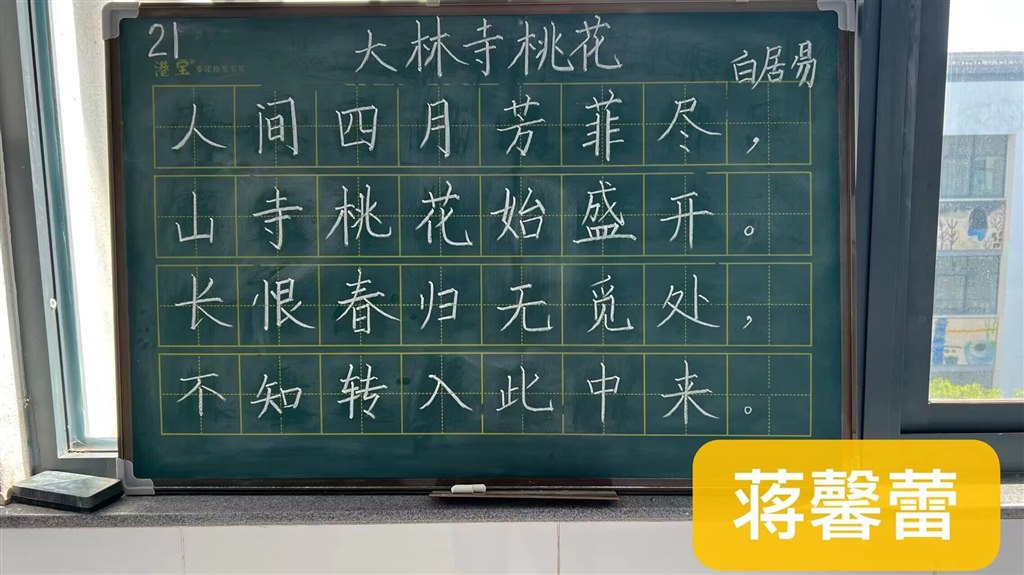 21
港宝
专注板书书写
大林寺桃花
白居易
人间四月芳菲尽，
山寺桃花始盛开。
长恨春归无觅处，
不知转入此中来。
蒋馨蕾